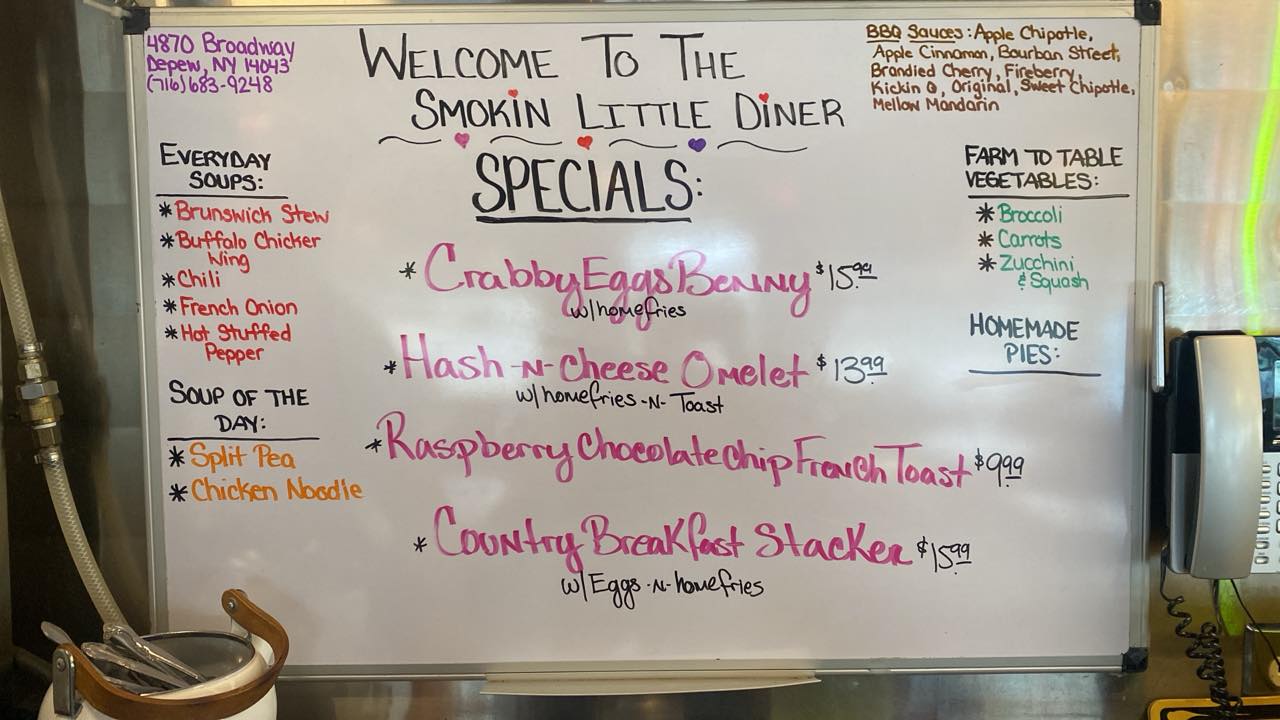 4870 Broadway
Depew, NY 14043
(716)683-9248
WELCOME TO THE
SMOKIN LITTLE DINER
SPECIALS:
BBQ Sauces: Apple Chipotle,
Apple Cinnamon, Bourban Street,
Brandied Cherry, Fireberry,
Kickin Q, Original, Sweet Chipotle,
Mellow Mandarin
EVERYDAY
SOUPS:
* Brunswick Stew
* Buffalo Chicken
Wing
* Chili
* French Onion
* Hot Stuffed
Pepper
SOUP OF THE
DAY:
* Split Pea
* Chicken Noodle
* Crabby Eggs Benny $15.99
w/homefries
* Hash-N-Cheese Omelet $13.99
w/homefries-N-Toast
* Raspberry Chocolate Chip French Toast $9.99
* Country Breakfast Stacker $15.99
w/Eggs-N-homefries
FARM TO TABLE
VEGETABLES:
* Broccoli
* Carrots
* Zucchini
& Squash
HOMEMADE
PIES: